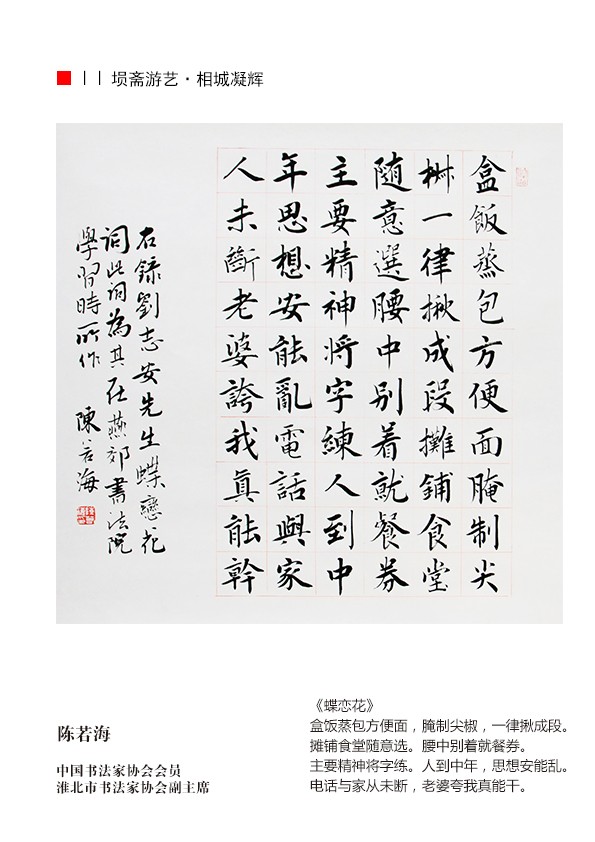 埙斋游艺·相城凝辉
盒飯蒸包方便面腌制尖
椒一律揪成段攤鋪食堂
随意選腰中别着就餐券
主要精神将字練人到中
年思想安能亂電話與家
人未斷老婆誇我真能幹
右錄劉志安先生蝶戀花
詞此詞为其在燕郊書法院
學習時所作 陳若海
陈若海
中国书法家协会会员
淮北市书法家协会副主席
《蝶恋花》
盒饭蒸包方便面，腌制尖椒，一律揪成段。
摊铺食堂随意选。腰中别着就餐券。
主要精神将字练。人到中年，思想安能乱。
电话与家从未断，老婆夸我真能干。